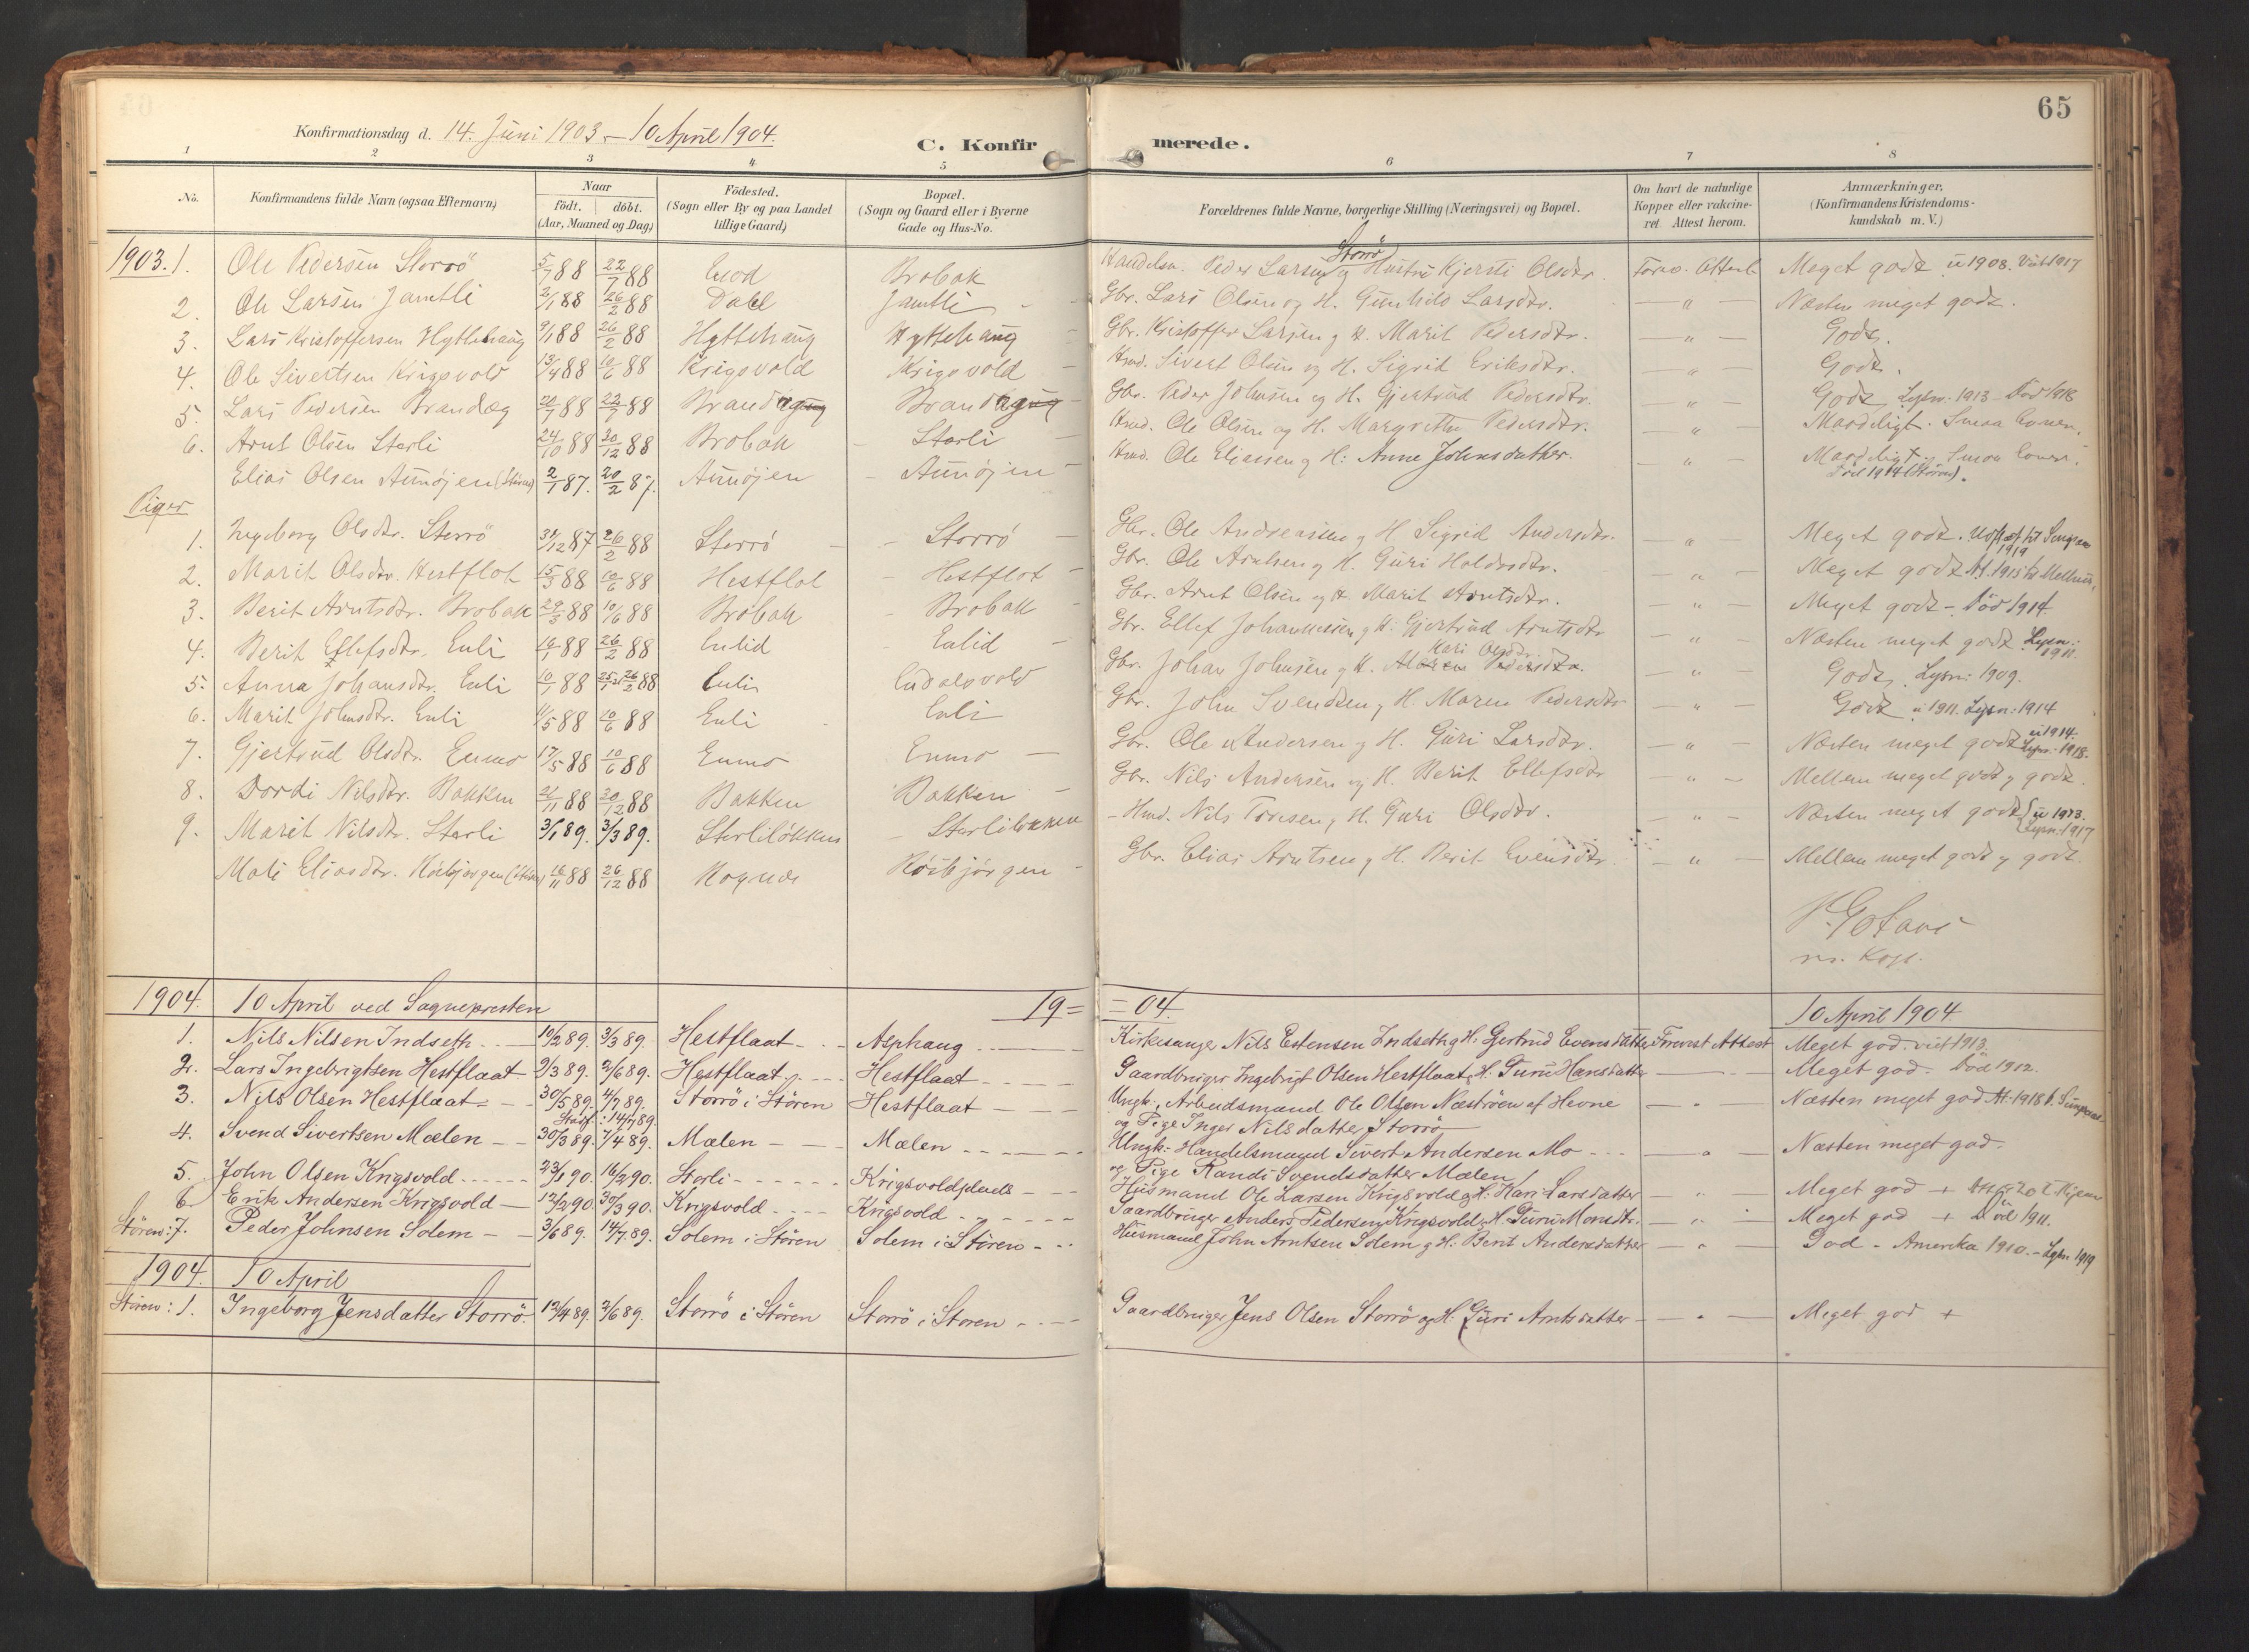 65
Konfirmationsdag d. 14. Juni 1903 – 10 April 1904.
C. Konfirmerede.
1 2 3 4 5 6 7 8
No. Konfirmandens fulde Navn (ogsaa Efternavn) Naar födt. döbt. (Aar, Maaned og Dag) Födested. (Sogn eller By og paa Landet tillige Gaard) Bopæl. (Sogn og Gaard eller i Byerne Gade og Hus-No. Forældrenes fulde Navne, borgerlige Stilling (Næringsvei) og Bopæl. Om havt de naturlige Kopper eller vakcineret. Attest herom. Anmærkninger. (Konfirmandens Kristendomskundskab m. V.)
1903. 1. Ole Pedersen Storrö 5/7 88 22/7 88 Brobak Handelsm. Peder Larsen Storrö og Hustru Kjersti Olsdtr. Forev. Attest. Meget godt u 1908. Viet 1917
2. Ole Larsen Jamtli 2/1 88 26/2 88 Jamtli Gbr. Lars Olsen og H. Gunhild Larsdtr. – " – Næsten meget godt.
3. Lars Kristoffersen Hyttehaug 9/1 88 26/2 88 Hyttehaug Hyttehaug Gbr. Kristoffer Larsen og H. Marit Pedersdtr. – " – Godt.
4. Ole Sivertsen Krigsvold 13/4 88 10/6 88 Krigsvold Krigsvold Hmd. Sivert Olsen og H. Sigrid Eriksdtr. – " – Godt.
5. Lars Pedersen Brandæg 88 22/7 88 Gbr. Peder Johnsen og H. Gjertrud Pedersdtr. – " – Godt Lysn. 1913 – Död 1918
6. Arnt Olsen Sterli 24/10 88 30/12 88 Brobak Sterli Hmd. Ole Olsen og H. Margrethe Pedersdtr. – " – Maadeligt. Smaa
Elias Olsen Aunøjen (Støren) 2/1 87. 20/2 87. Aunøjen Aunøjen Hmd. Ole Eliassen og H: Anne Johnsdatter. – " – Maadeligt. Smaa
1914 (Støren).
Piger
1. Ingeborg Olsdtr. Storrö 31/12 87 26/2 88 Storrö Storrö Gbr. Ole Andreassen og H. Sigrid Andersdtr. – " – Meget godt. 1919
2. Marit Olsdtr. Hestflot 15/3 88 10/6 88 Hestflot Hestflot Gbr. Ole Arntsen og H. Guri Haldosdtr. – " – Meget godt At. 1915 til Melhus
3. Berit Arntsdtr. Brobak 29/3 88 10/6 88 Brobak Brobak Gbr. Arnt Olsen og H. Marit Arntsdtr. – " – Meget godt – Död 1914.
4. Berit Ellefsdtr. Enli 16/1 88 26/2 88 Enlid Enlid Gbr. Ellef Johannessen og H. Gjertrud Arntsdtr – " – Næsten meget godt. Lysn: 1911.
5. Anna Johansdtr. Enli 10/1 88 26/2 88 Enli Gbr. Johan Johnsen og H. Kari Olsdtr. Maren Pedersdtr. – " – Godt, Lysn: 1909.
6. Marit Johnsdtr. Enli 11/5 88 10/6 88 Enli Enli Gbr. John Svendsen og H. Maren Pedersdtr – " – Godt u 1911. Lysn: 1914
7. Gjertrud Olsdtr. Enmo 17/5 88 10/6 88 Enmo Enmo Gbr. Ole Andersen og H. Guri Larsdtr. – " – Næsten meget godt u 1914. Lysn: 1918.
8. Dordi Nilsdtr. Bakken 21/11 88 30/12 88 Bakken Bakken Gbr. Nils Andersen og H. Berit Ellefsdtr – " – Mellem meget godt og godt.
9. Marit Nilsdtr. Sterli 3/1 89. 3/3 89. Sterliløkken Sterliløkken Hmd. Nils Toresen og H. Guri Olsdtr. – " – Næsten meget godt u 1913. Lysn: 1917
Mali Eliasdtr. Røsbjørgen (Støren) 16/11 88 26/12 88 Rognes Røsbjørgen Gbr. Elias Arntsen og H. Berit Evensdtr. – " – Mellem meget godt og godt.
1904. 10 April ved Sognepresten 19 = = 04. 10 April 1904
1. Nils Nilsen Indseth 10/2 89. 3/3 89. Hestflaat Asphaug Kirkesanger Nils Estensen Indseth og H: Gertrud Evensdatter Forevist Attest Meget god. viet 1913.
2. Lars Ingebrigtsen Hestflaat 2/3 89. 2/6 89. Hestflaat Hestflaat Gaardbruger Ingebrigt Olsen Hestflaat og H. Guru Hansdatter – " – Meget god. Död 1912.
3. Nils Olsen Hestflaat 30/5 89. 4/7 89. Storrö i Stören Hestflaat Ungk., Arbeidsmand Ole Olsen Næströen af Hevne – " – Næsten meget god At. 1918 t.
14/7 89 og Pige Inger Nilsdatter Storrö
4. Svend Sivertsen Mælen 30/3 89. 7/4 89. Mælen Mælen Ungk. Handelsmand Sivert Andersen Mo – " – Næsten meget god.
og Pige Randi Svendsdatter Mælen
5. John Olsen Krigsvold 23/1 90. 16/2 90. Sterli Krigsvoldplads Husmand Ole Larsen Krigsvold og H: Kari Larsdatter – " – Meget god +
6. Erik Andersen Krigsvold 12/2 90. 30/3 90. Krigsvold Krigsvold Gaardbruger Anders Pedersen Krigsvold og H. Guru Monsdtr. – " – Meget god + Död 1911.
Stören: 7. Peder Johnsen Solem 3/6 89. 14/7 89. Solem i Stören Solem i Stören Husmand John Arntsen Solem og H: Berit Andersdatter – " – God – Amerika 1910. – Lysn 1919
1904. 10 April
Stören: 1. Ingeborg Jensdatter Storrö. 12/4 89. 2/6 89. Storrö i Stören Storrö i Stören Gaardbruger Jens Olsen Storrö og H: Guri Arntsdatter – " – Meget god +